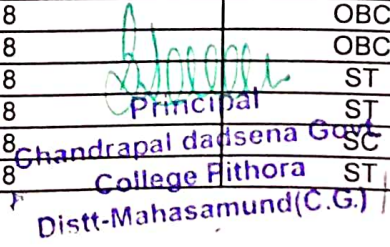 8 OBC
8 OBC
8 ST
8 Principal ST
8 Chandrapal dadsena Govt. SC
8 College Pithora ST
Distt-Mahasamund(C.G.)